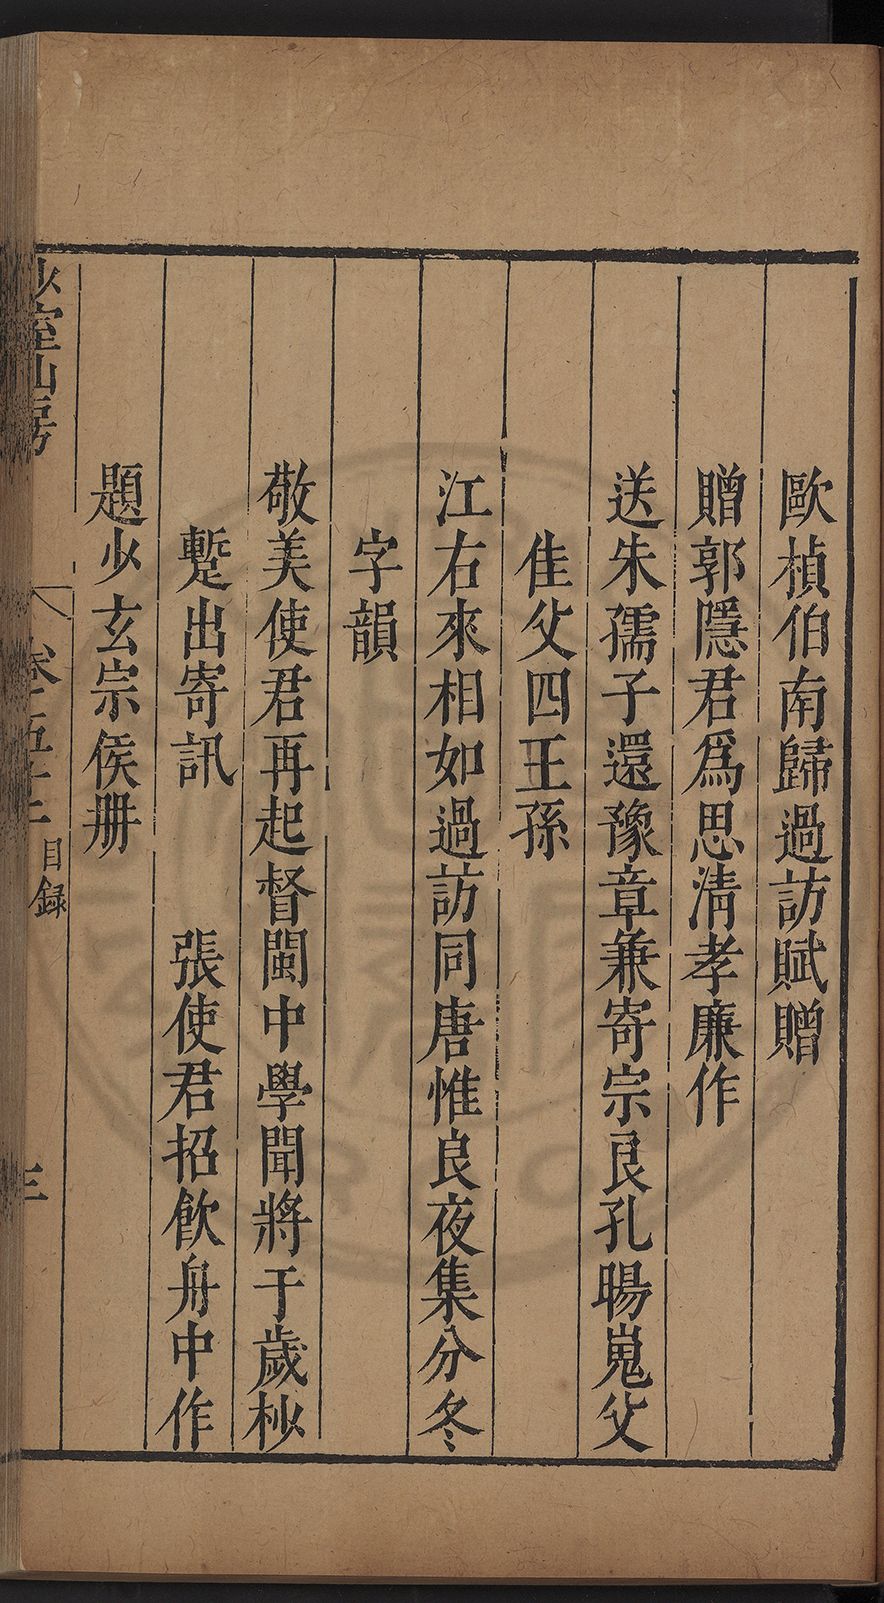 歐楨伯南歸過訪賦贈
贈郭隱君爲思清孝廉作
送朱孺子還豫章兼寄宗良孔暘嵬父
隹父四王孫
江右來相如過訪同唐惟良夜集分冬
字韻
敬美使君再起督閩中學聞將于歲杪
蹔出寄訊　張使君招飲舟中作
題少玄宗侯册
少室山房
目録
三